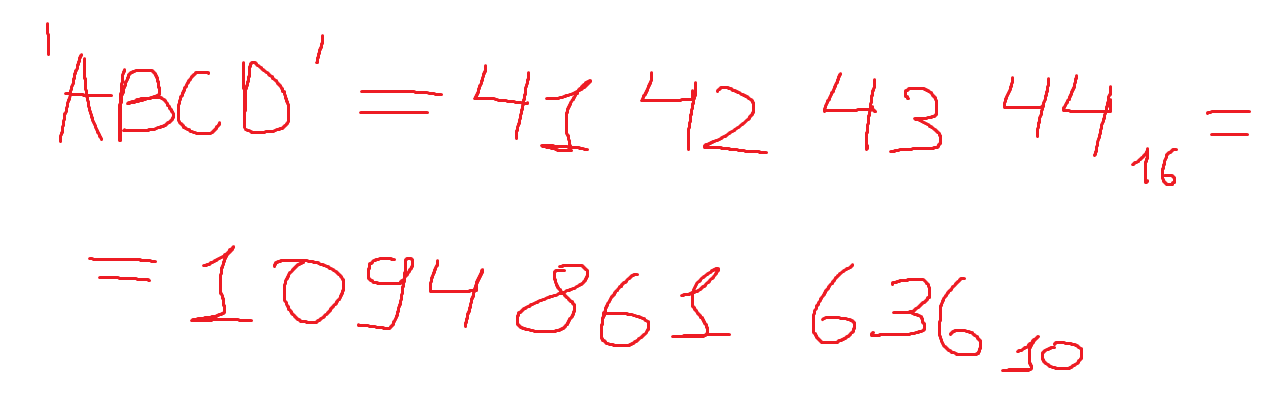 'ABCD' = 41 42 43 44₁₆ =
= 1 094 861 636₁₀